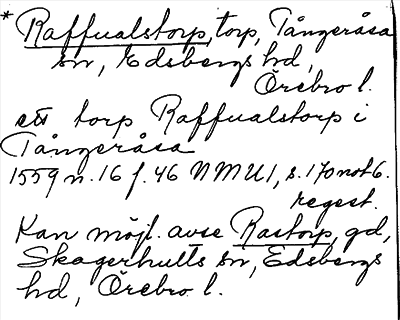 * Raffualstorp, torp, Tångeråsa
sn, Edsbergs hd,
Örebro l.
ett torp Raffualstorp i
Tångeråsa
1559 n. 16 f. 46 NMU1, s. 170 not 6.
regest.
Kan möjl. avse Rastorp, gd,
Skagerhults sn, Edsbergs
hd, Örebro l.